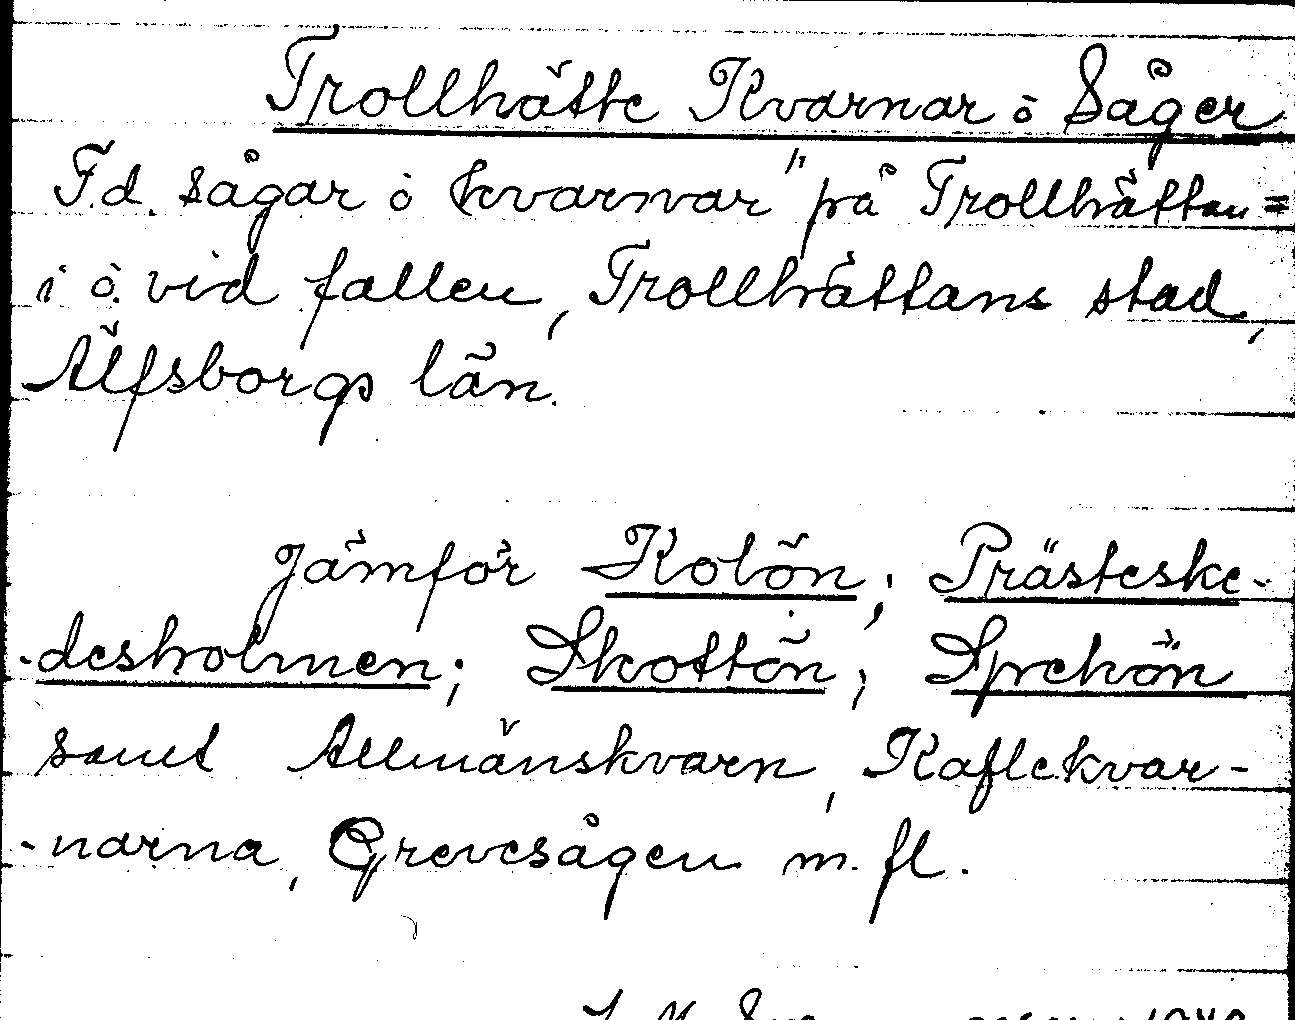 Trollhätte Kvarnar o Såger
F.d. sågar o kvarnar "på Trollhättan =
i o. vid fallen, Trollhättans stad,
Älfsborgs län.
Jämför Kolön; Prästeske-
-desholmen; Skottön; Sprekön
samt Allmänskvarn, Kaflekvar-
-narna, Grevesågen m. fl.